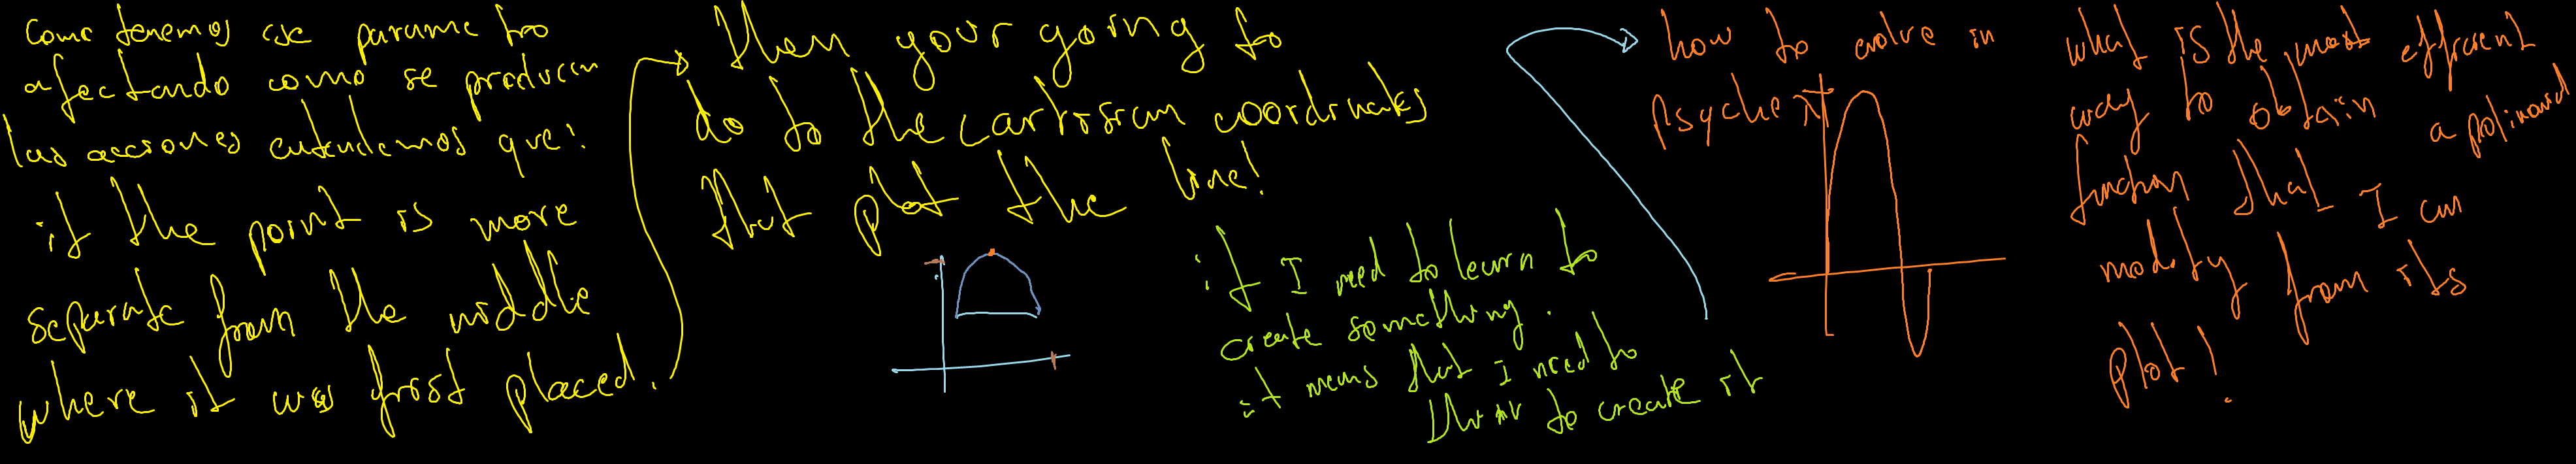 Como tenemos ese parametro
afectando como se producen
las acciones entendemos que:
if the point is more
separate from the middle
where it was frost placed.
then your going to
do to the cartisian coordinates
that plot the line!
if I need to learn to
create something.
it means that I need to
to create it
how to evolve in
Psyche
what is the most efficient
way to obtain a polinomial
function that I can
modify from its
plot!